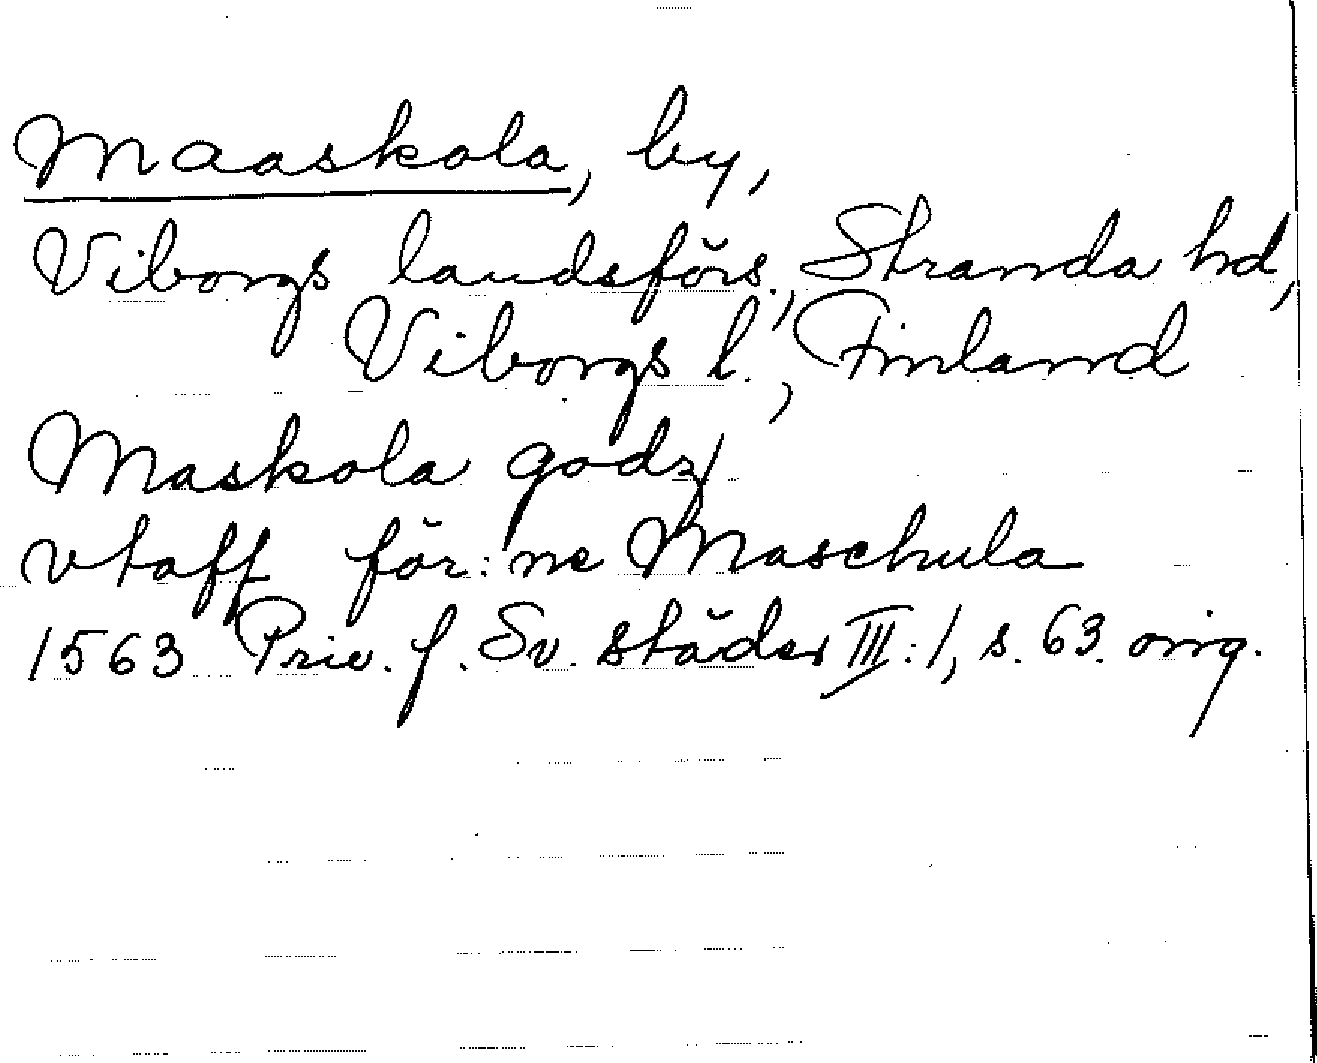 Maaskola, by,
Viborgs landsförs., Stranda hd,
Viborgs l., Finland
Maskola godz/
vtaff för:ne Maschula
1563 Priv. f. Sv. städer III:1, s. 63. orig.